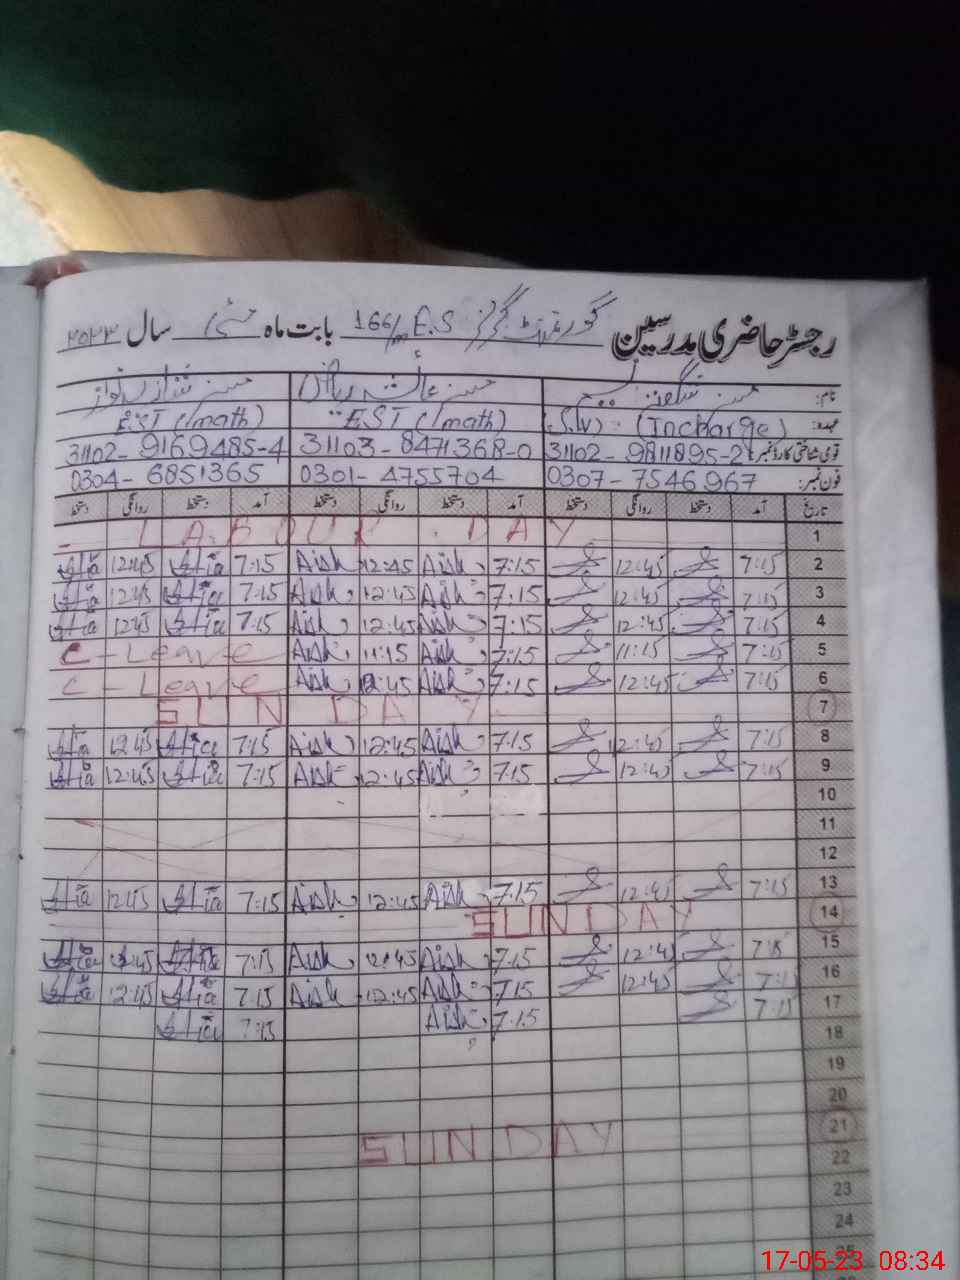 رجسٹر حاضری مدرسین گورنمنٹ گرلز E.S 166/m بابت ماہ مئی سال ۲۰۲۳
نام: مسز شگفتہ مسز عائشہ ریاض مسز نواز
عہدہ: (S.W) (Incharge) EST (math) EST (math)
قومی شناختی کارڈ نمبر: 31102-9811895-2 31103-8471368-0 31102-9169485-4
فون نمبر: 0307-7546967 0301-4755704 0304-6851365
تاریخ آمد دستخط روانگی دستخط آمد دستخط روانگی دستخط آمد دستخط روانگی دستخط
1 LABOUR DAY
2 7:15 12:45 7:15 Aish 12:45 Aish 7:15 Atia 12:45 Atia
3 7:15 12:45 7:15 Aish 12:45 Aish 7:15 Atia 12:45 Atia
4 7:15 12:45 7:15 Aish 12:45 Aish 7:15 Atia 12:45 Atia
5 7:15 11:15 7:15 Aish 11:15 Aish C-Leave
6 7:15 12:45 7:15 Aish 12:45 Aish C-Leave
7 SUNDAY
8 7:15 12:45 7:15 Aish 12:45 Aish 7:15 Atia 12:45 Atia
9 7:15 12:45 7:15 Aish 12:45 Aish 7:15 Atia 12:45 Atia
10
11
12
13 7:15 12:45 7:15 Aish 12:45 Aish 7:15 Atia 12:45 Atia
14 SUNDAY
15 7:15 12:45 7:15 Aish 12:45 Aish 7:15 Atia 12:45 Atia
16 7:15 12:45 7:15 Aish 12:45 Aish 7:15 Atia 12:45 Atia
17 7:15 7:15 Aish 7:15 Atia
18
19
20
21 SUNDAY
22
23
24
25
17-05-23 08:34